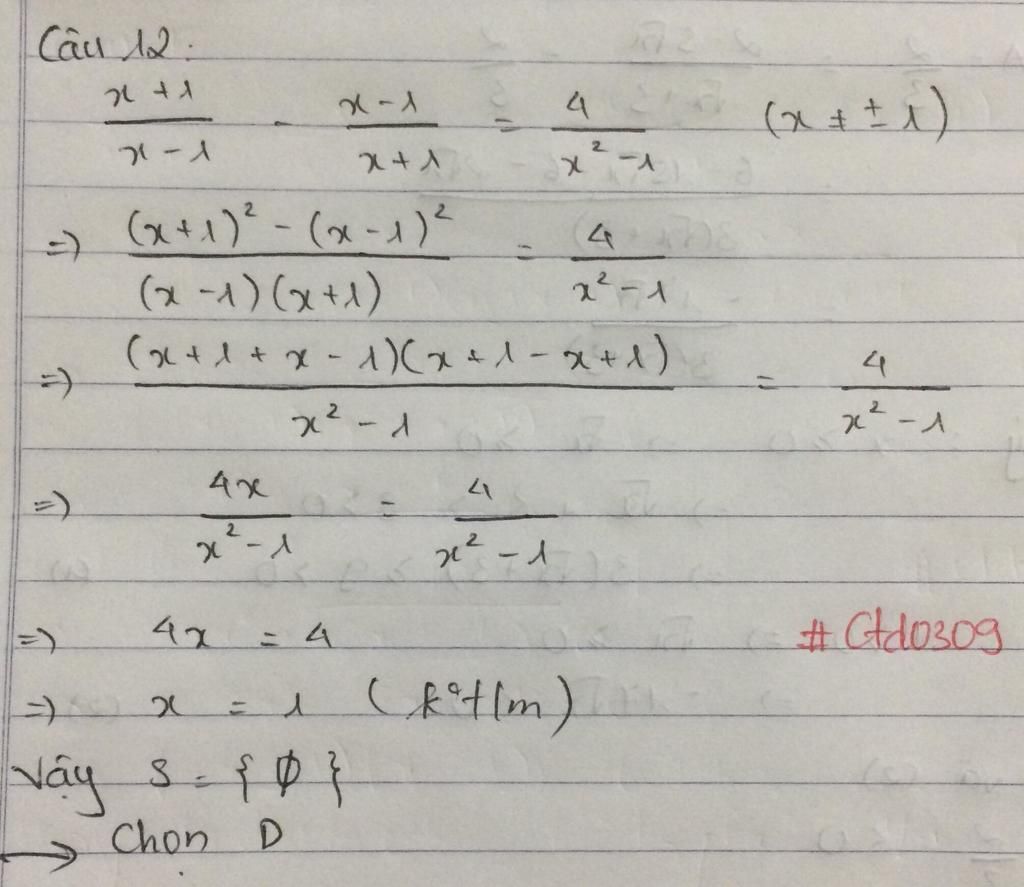 Câu 12:
(x+1)/(x-1) - (x-1)/(x+1) = 4/(x²-1) (x ≠ ± 1)
=) ((x+1)² - (x-1)²)/((x-1)(x+1)) = 4/(x²-1)
=) ((x+1+x-1)(x+1-x+1))/(x²-1) = 4/(x²-1)
=) 4x/(x²-1) = 4/(x²-1)
=) 4x = 4 # Ctd0309
=) x = 1 (k°t/m)
Vậy S = { ∅ }
→ Chọn D